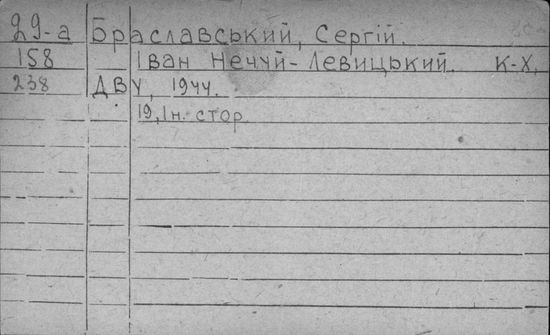 29-а Браславський, Сергій.
158 Іван Нечуй-Левицький. К-Х,
238 ДВУ, 1944.
19, Ін. стор.